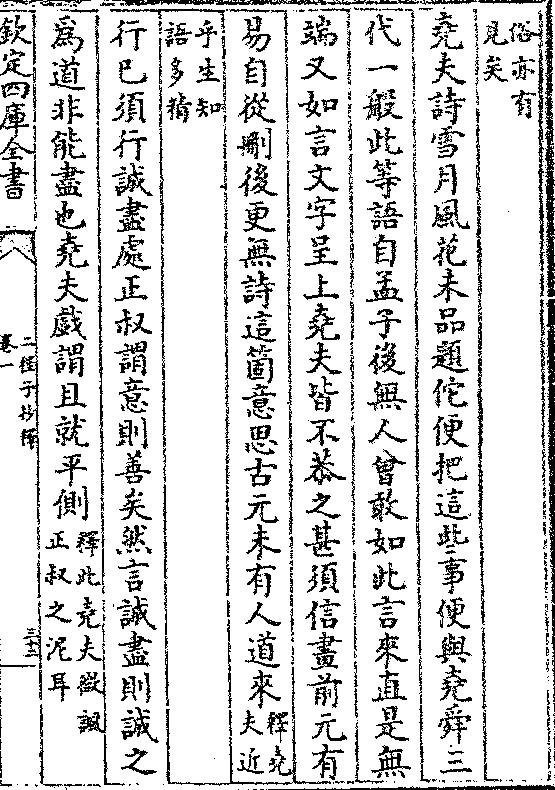 俗亦有
見矣
堯夫詩雪月風花未品題佗便把這些事便與堯舜三
代一般此等語自孟子後無人曾敢如此言來直是無
端又如言文字呈上堯夫皆不恭之甚須信畫前元有
易自從刪後更無詩這箇意思古元未有人道來釋堯夫近
乎生知
語多猜
行已須行誠盡處正叔謂意則善矣然言誠盡則誠之
為道非能盡也堯夫戲謂且就平側釋此堯夫微諷正叔之泥耳
欽定四庫全書
二程子抄釋
卷一
三十三